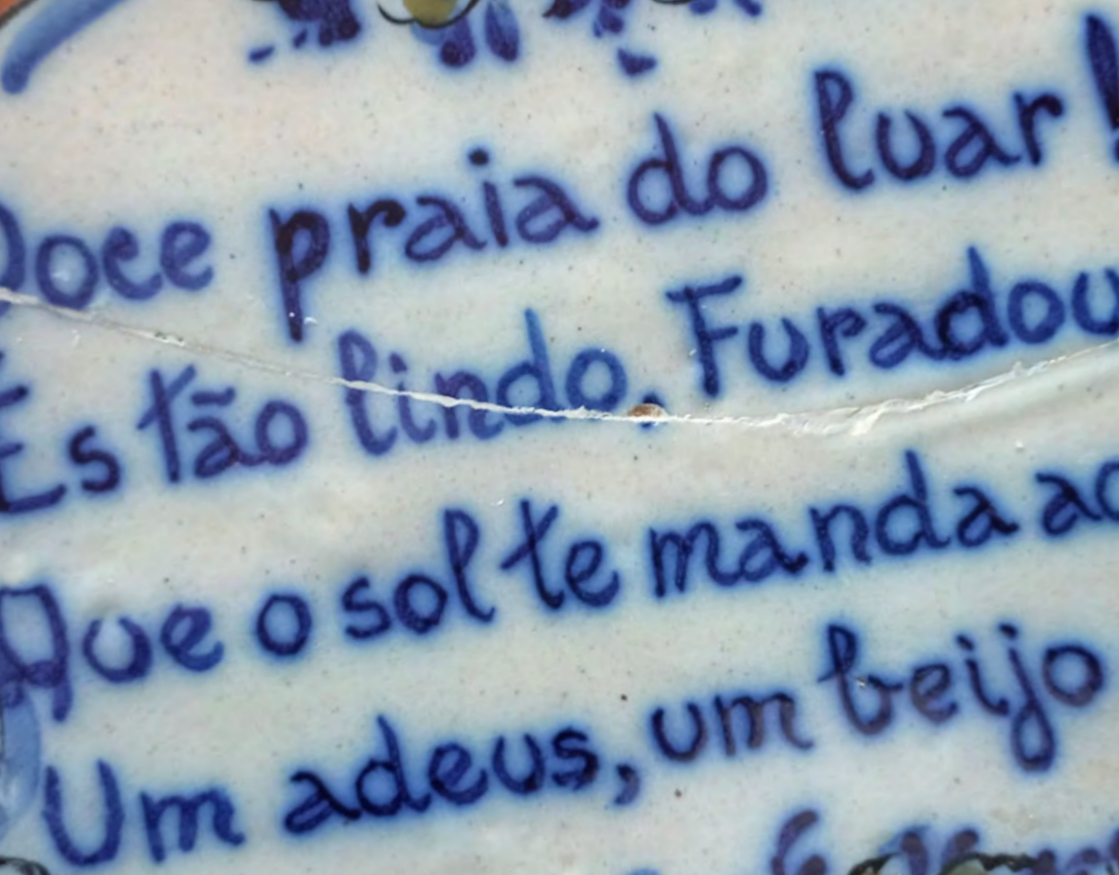 Doce praia do luar!
És tão lindo, Furadou
Que o sol te manda ao
Um adeus, um beijo